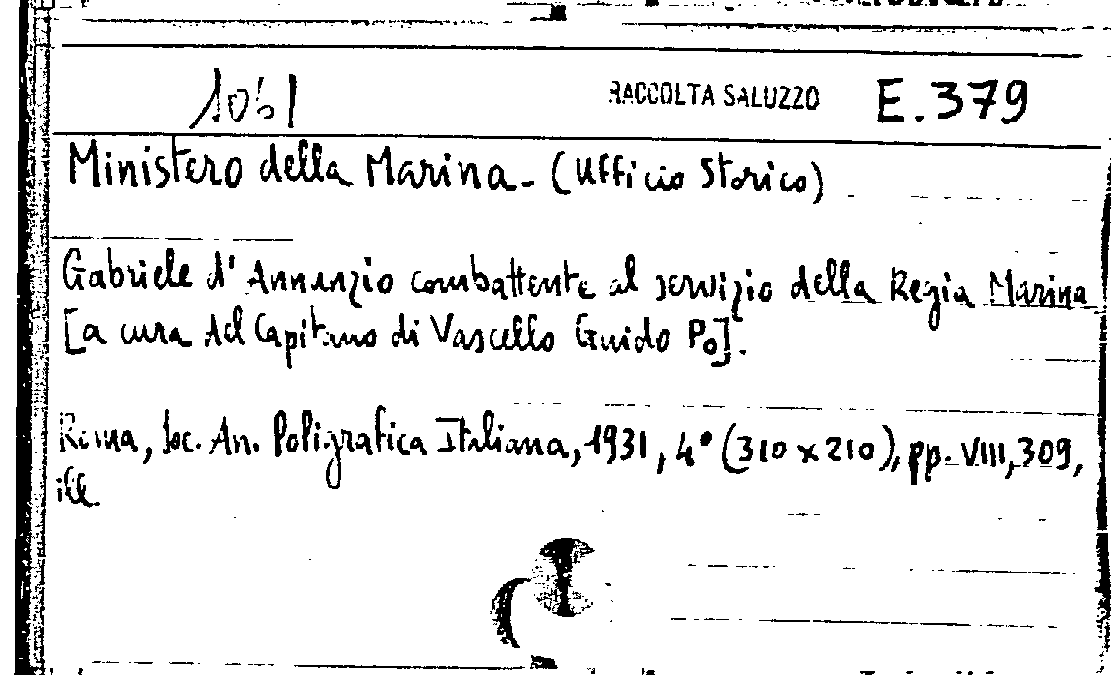 1061 RACCOLTA SALUZZO E.379
Ministero della Marina - (Ufficio Storico)
Gabriele d'Annunzio combattente al servizio della Regia Marina
[a cura del Capitano di Vascello Guido Po].
Roma, Soc. An. Poligrafica Italiana, 1931, 4° (310 x 210), pp. VIII, 309,
ill.